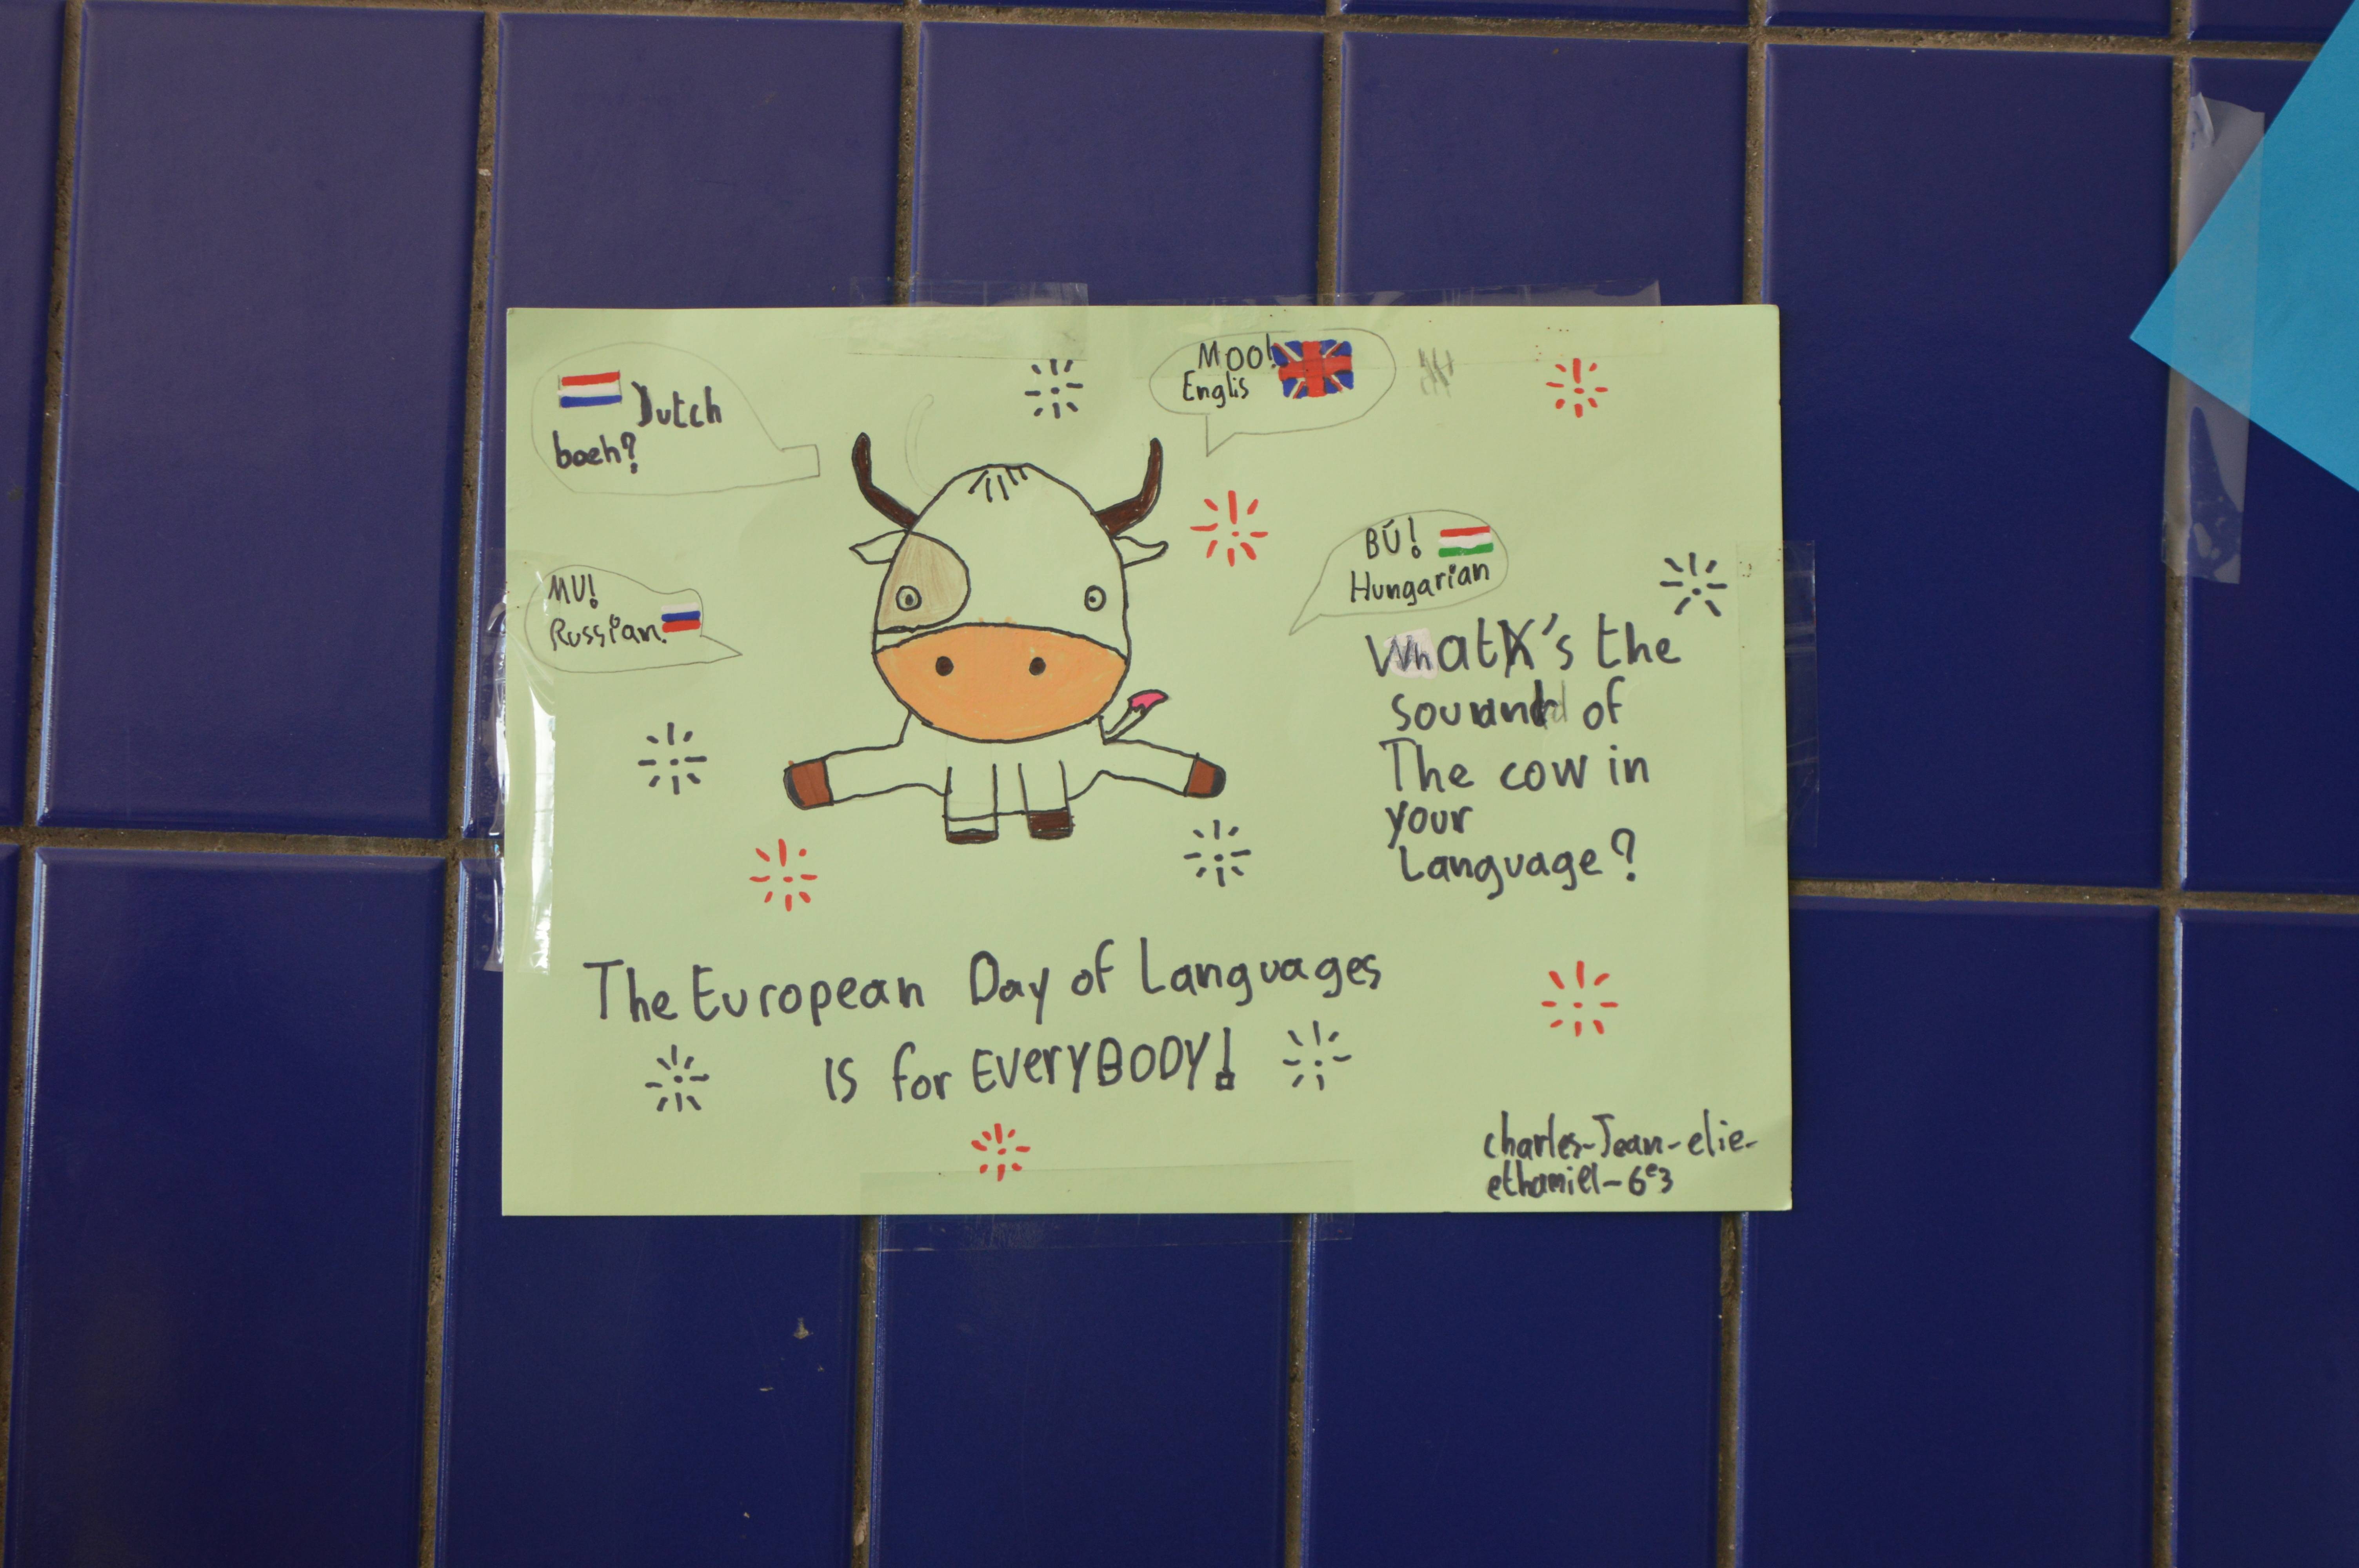 Dutch
boeh?
MOO!
Englis
MU!
Russian.
BÚ!
Hungarian
What's the
sound of
The cow in
your
Language?
The European Day of Languages
IS for EVerYBODY!
charles-Jean-elie-
ethamiel-6e3